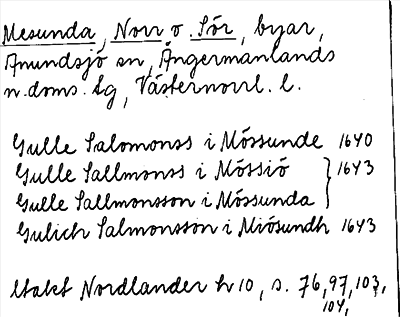 Mesunda, Norr o. Sör, byar,
Anundsjö sn, Ångermanlands
n. doms. sg, Västernorrl. l.
Gulle Salomonss i Mössunde 1640
Gulle Sallmonss i Mössiö } 1643
Gulle Sallmonsson i Mössunda
Gulich Salmonsson i Miösundh 1643
Utakt Nordlander h 10, s. 76, 97, 103,
104,